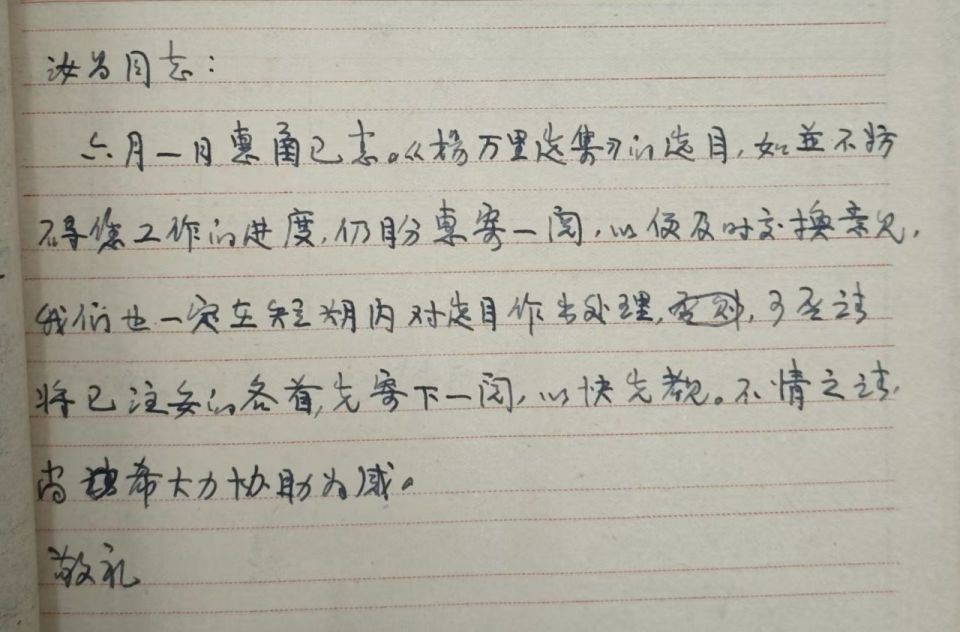 汝昌同志：
六月一日惠函已悉。《杨万里选集》的选目，如並不妨
碍您工作的进度，仍盼惠寄一阅，以便及时交换意见，
我们也一定在短期内对选目作出处理，否则，可否请
将已注妥的各首，先寄下一阅，以快先覩。不情之请，
尚希大力协助为感。
敬礼